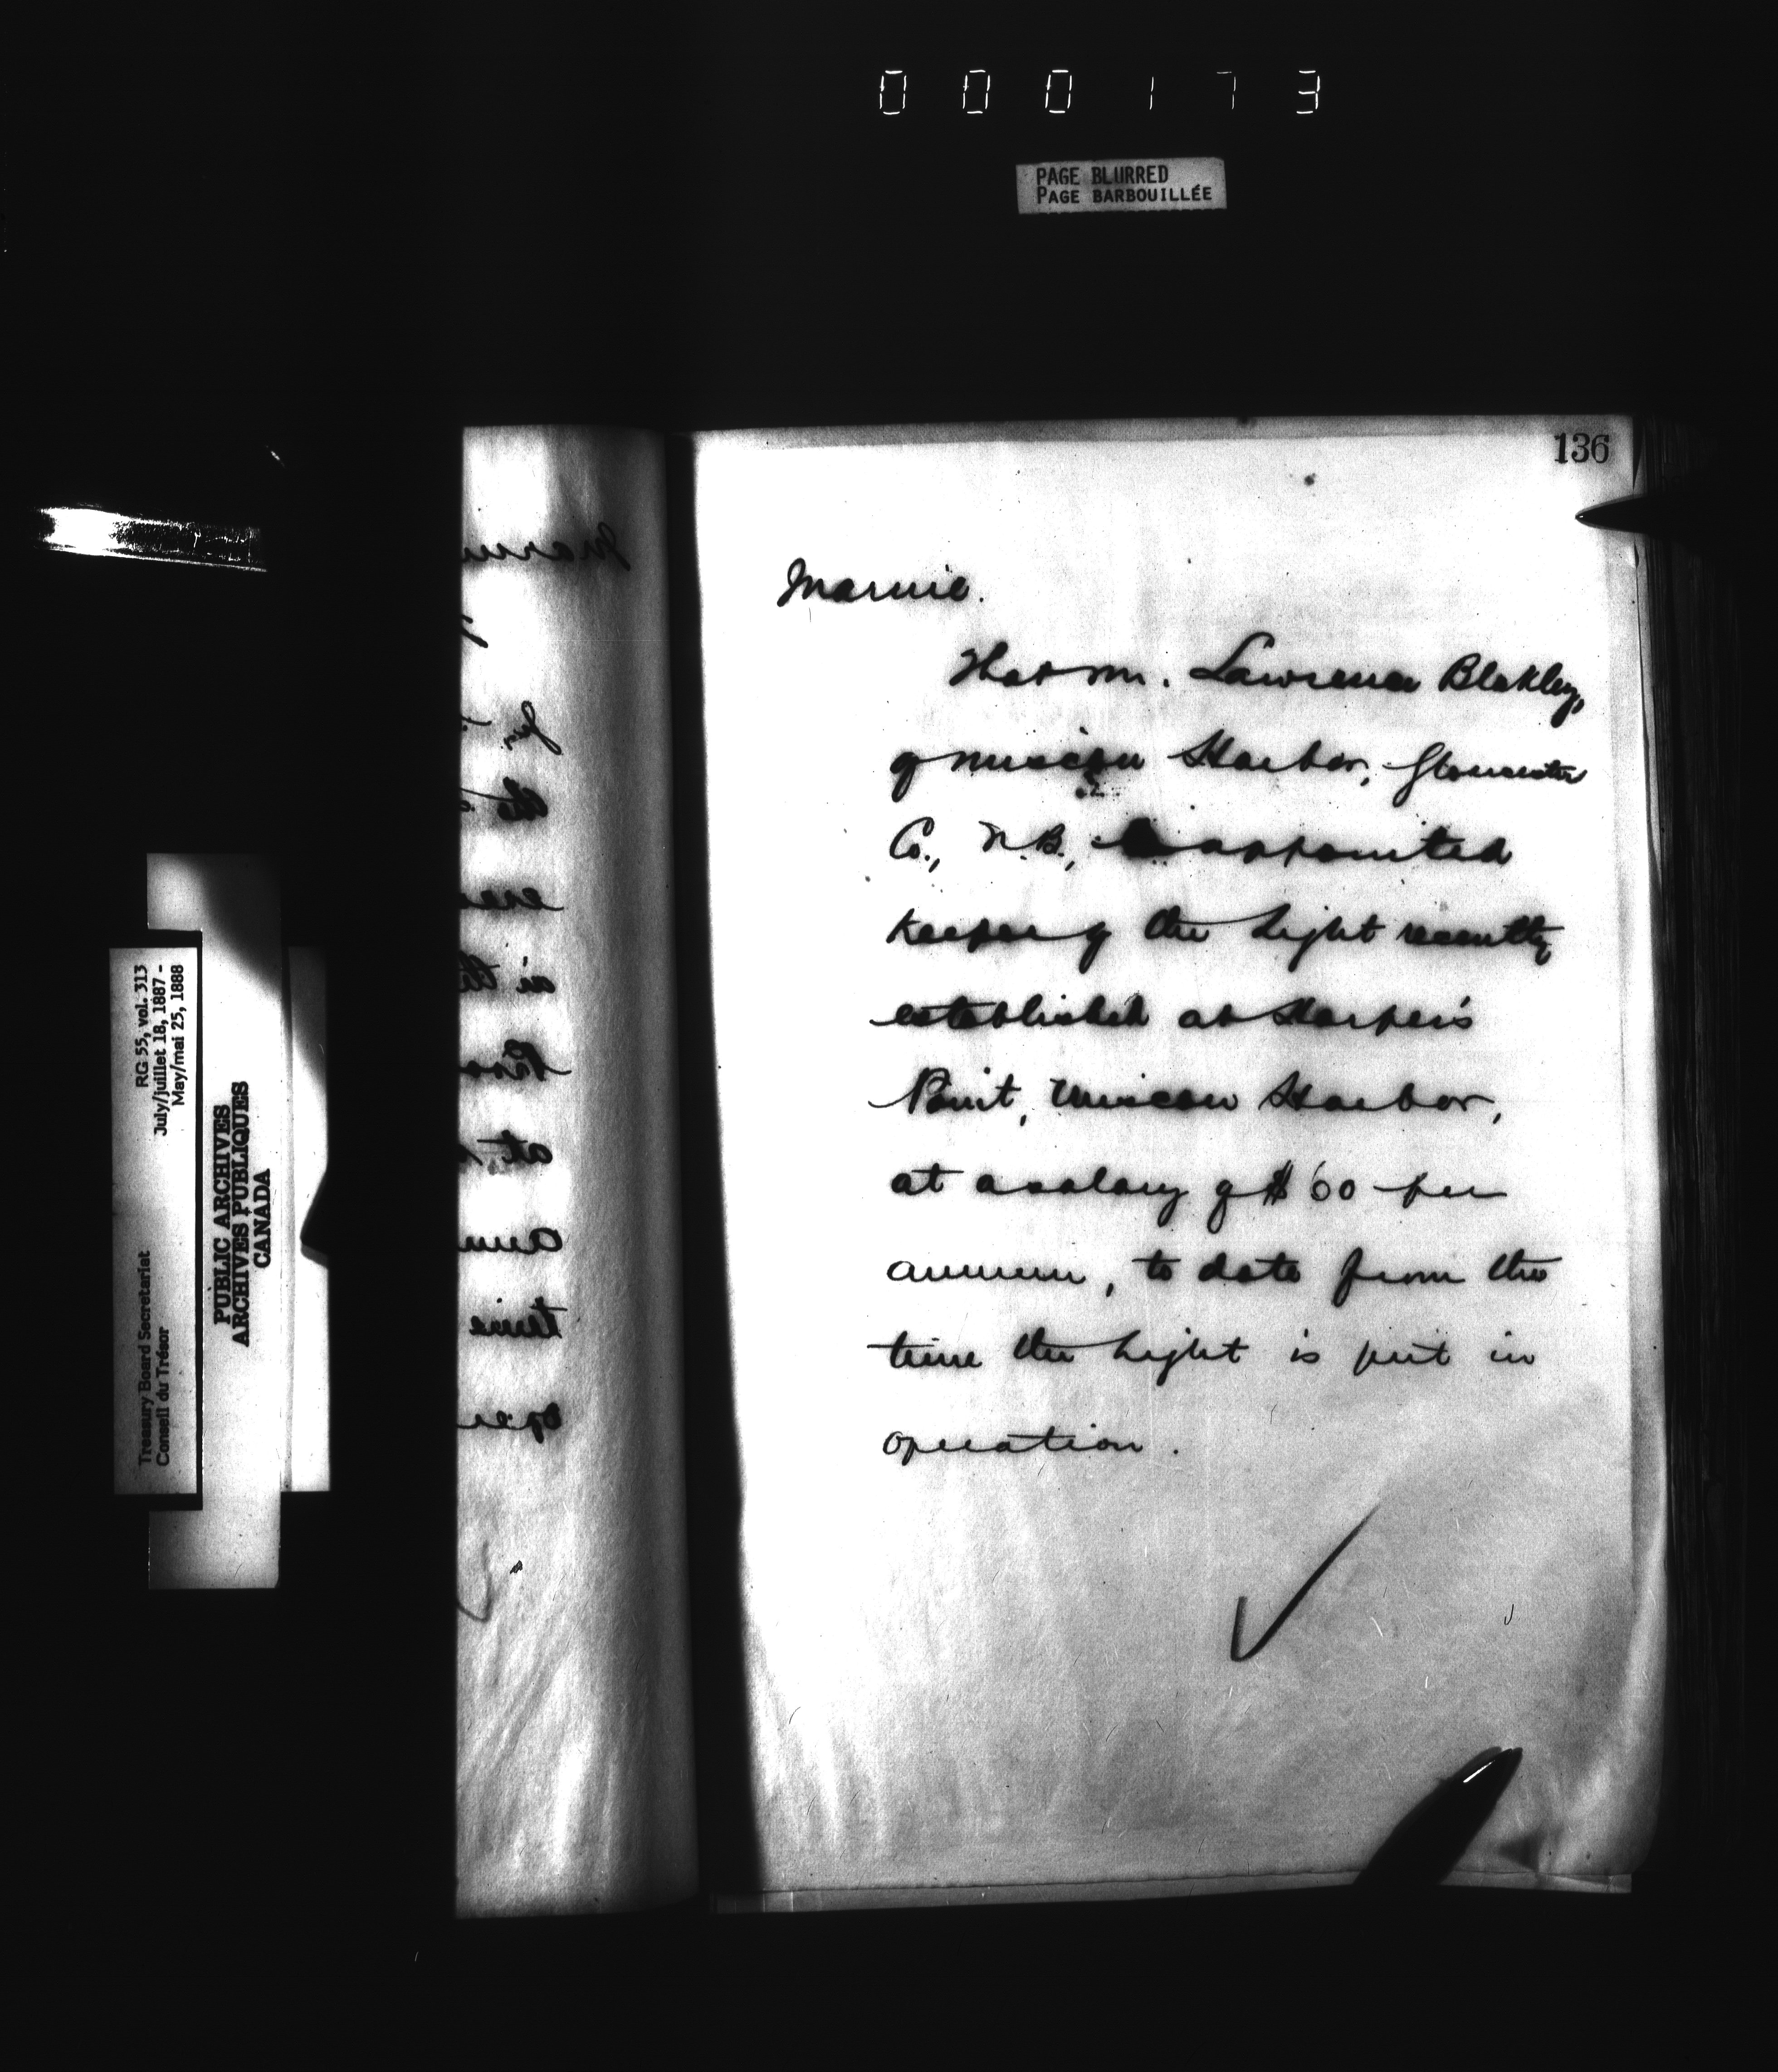 000173
PAGE BLURRED
PAGE BARBOUILLÉE
136
Marine.
That Mr. Lawrence Blakley,
of Miscou Harbor, Gloucester
Co., N.B., be appointed
keeper of the Light recently
established at Harper's
Point, Miscou Harbor,
at a salary of $60 per
annum, to date from the
time the Light is put in
operation.
RG 55, vol. 313
July/juillet 18, 1887 -
May/mai 25, 1888
Treasury Board Secretariat
Conseil du Trésor
PUBLIC ARCHIVES
ARCHIVES PUBLIQUES
CANADA